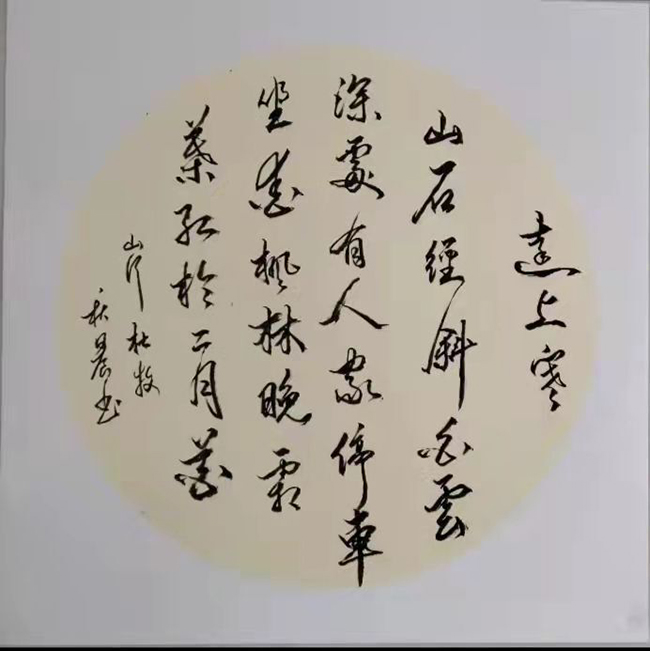 遠上寒
山石徑斜白雲
深處有人家停車
坐愛楓林晚霜
葉紅於二月花
山行 杜牧
秋晨书